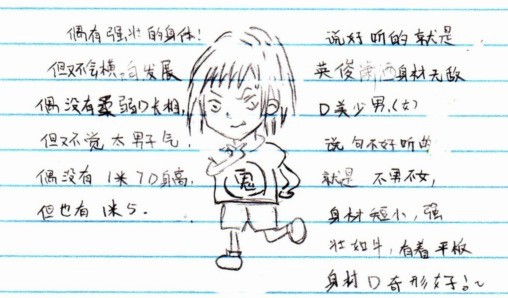 偶有强壮的身体!
但又不会横向发展
偶没有柔弱D长相,
但又不觉太男子气.
偶没有1米7D身高,
但也有1米5.
鬼
说好听的就是
英俊潇洒身材无敌
D美少男.(女)
说句不好听的
就是 不男不女,
身材短小,强
壮如牛,有着平板
身材D奇形女子!~